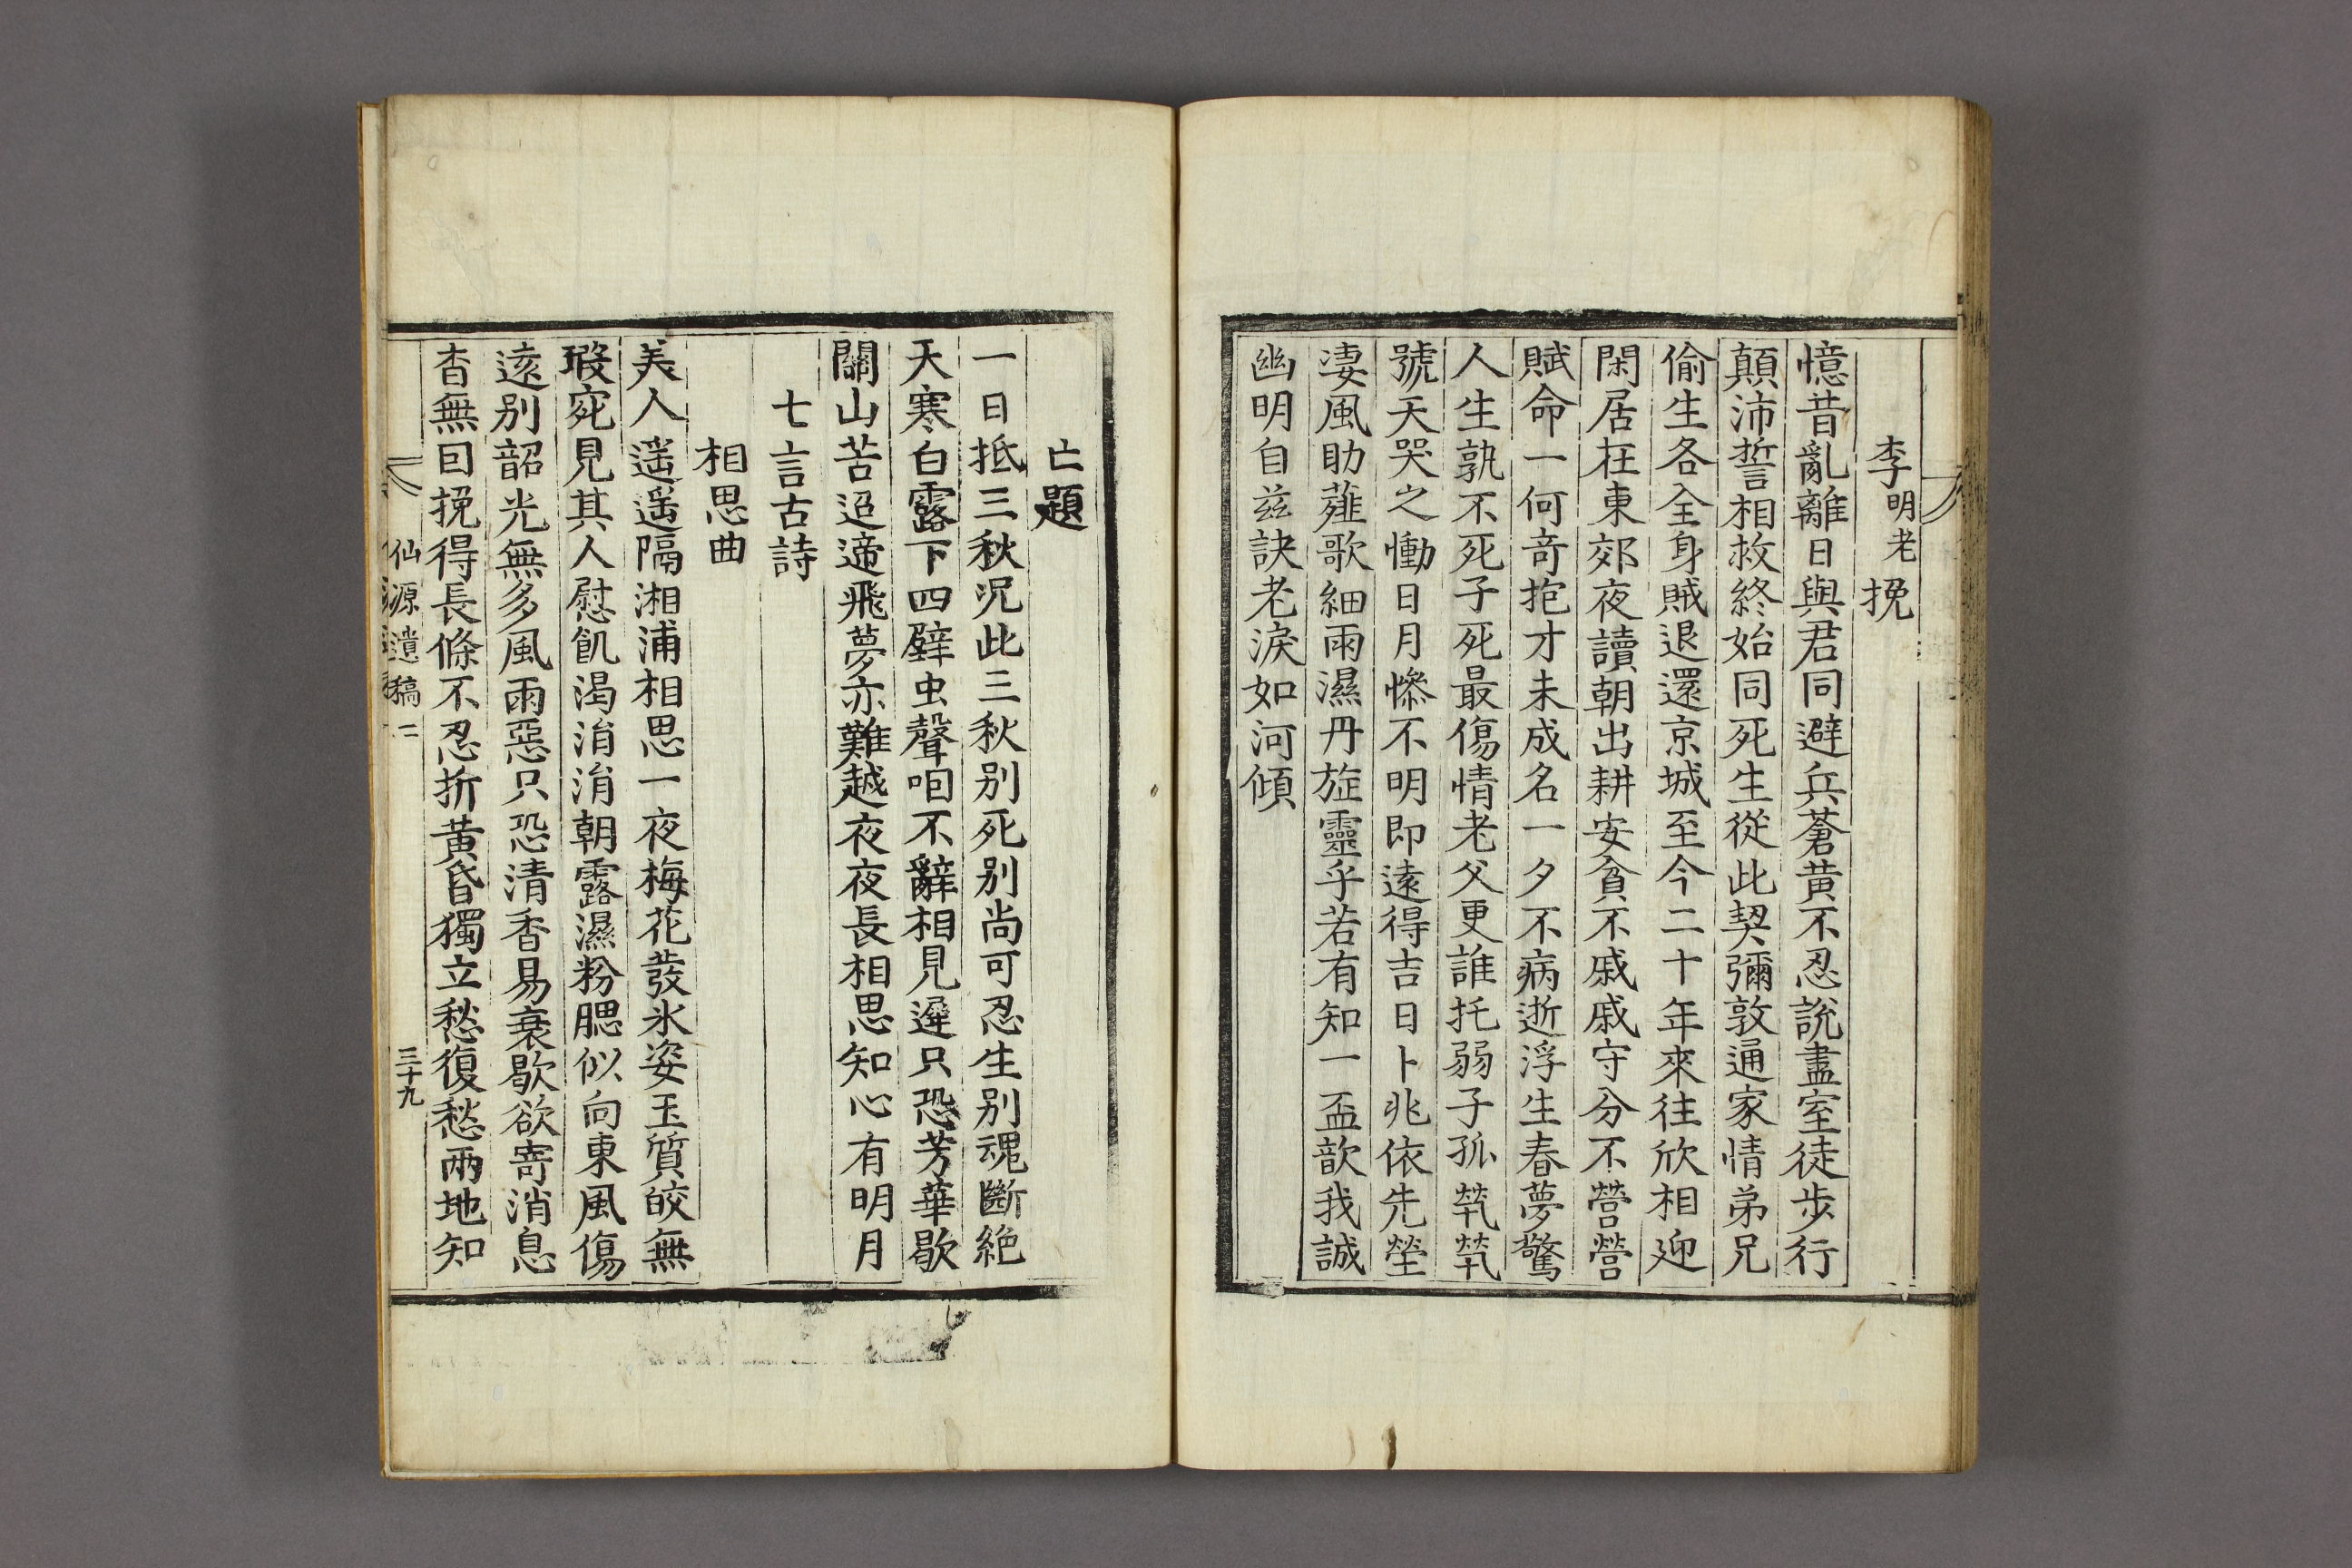 李明老挽
憶昔亂離日與君同避兵蒼黃不忍說盡室徒步行
顛沛誓相救終始同死生從此契彌敦通家情弟兄
偷生各全身賊退還京城至今二十年來往欣相迎
閑居在東郊夜讀朝出耕安貧不戚戚守分不營營
賦命一何奇抱才未成名一夕不病逝浮生春夢驚
人生孰不死子死最傷情老父更誰托弱子孤煢煢
號天哭之慟日月慘不明即遠得吉日卜兆依先塋
淒風助薤歌細雨濕丹旌靈乎若有知一盃歆我誠
幽明自兹訣老淚如河傾
亡題
一日抵三秋況此三秋別死別尚可忍生別魂斷絶
天寒白露下四壁虫聲咽不辭相見遲只恐芳華歇
關山苦迢遆飛夢亦難越夜夜長相思知心有明月
七言古詩
相思曲
美人遥遥隔湘浦相思一夜梅花發氷姿玉質皎無
瑕宛見其人慰飢渴涓涓朝露濕粉腮似向東風傷
遠別韶光無多風雨惡只恐清香易衰歇欲寄消息
杳無因挽得長條不忍折黃昏獨立愁復愁兩地知
仙源遺稿二
三十九